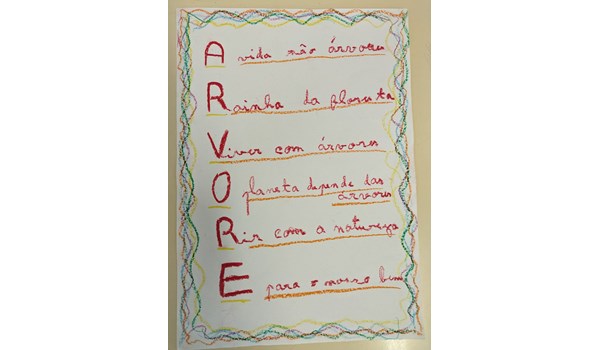 A vida são árvores
Rainha da floresta
Viver com árvores
O planeta depende das
árvores
Rir com a natureza
E para o nosso bem